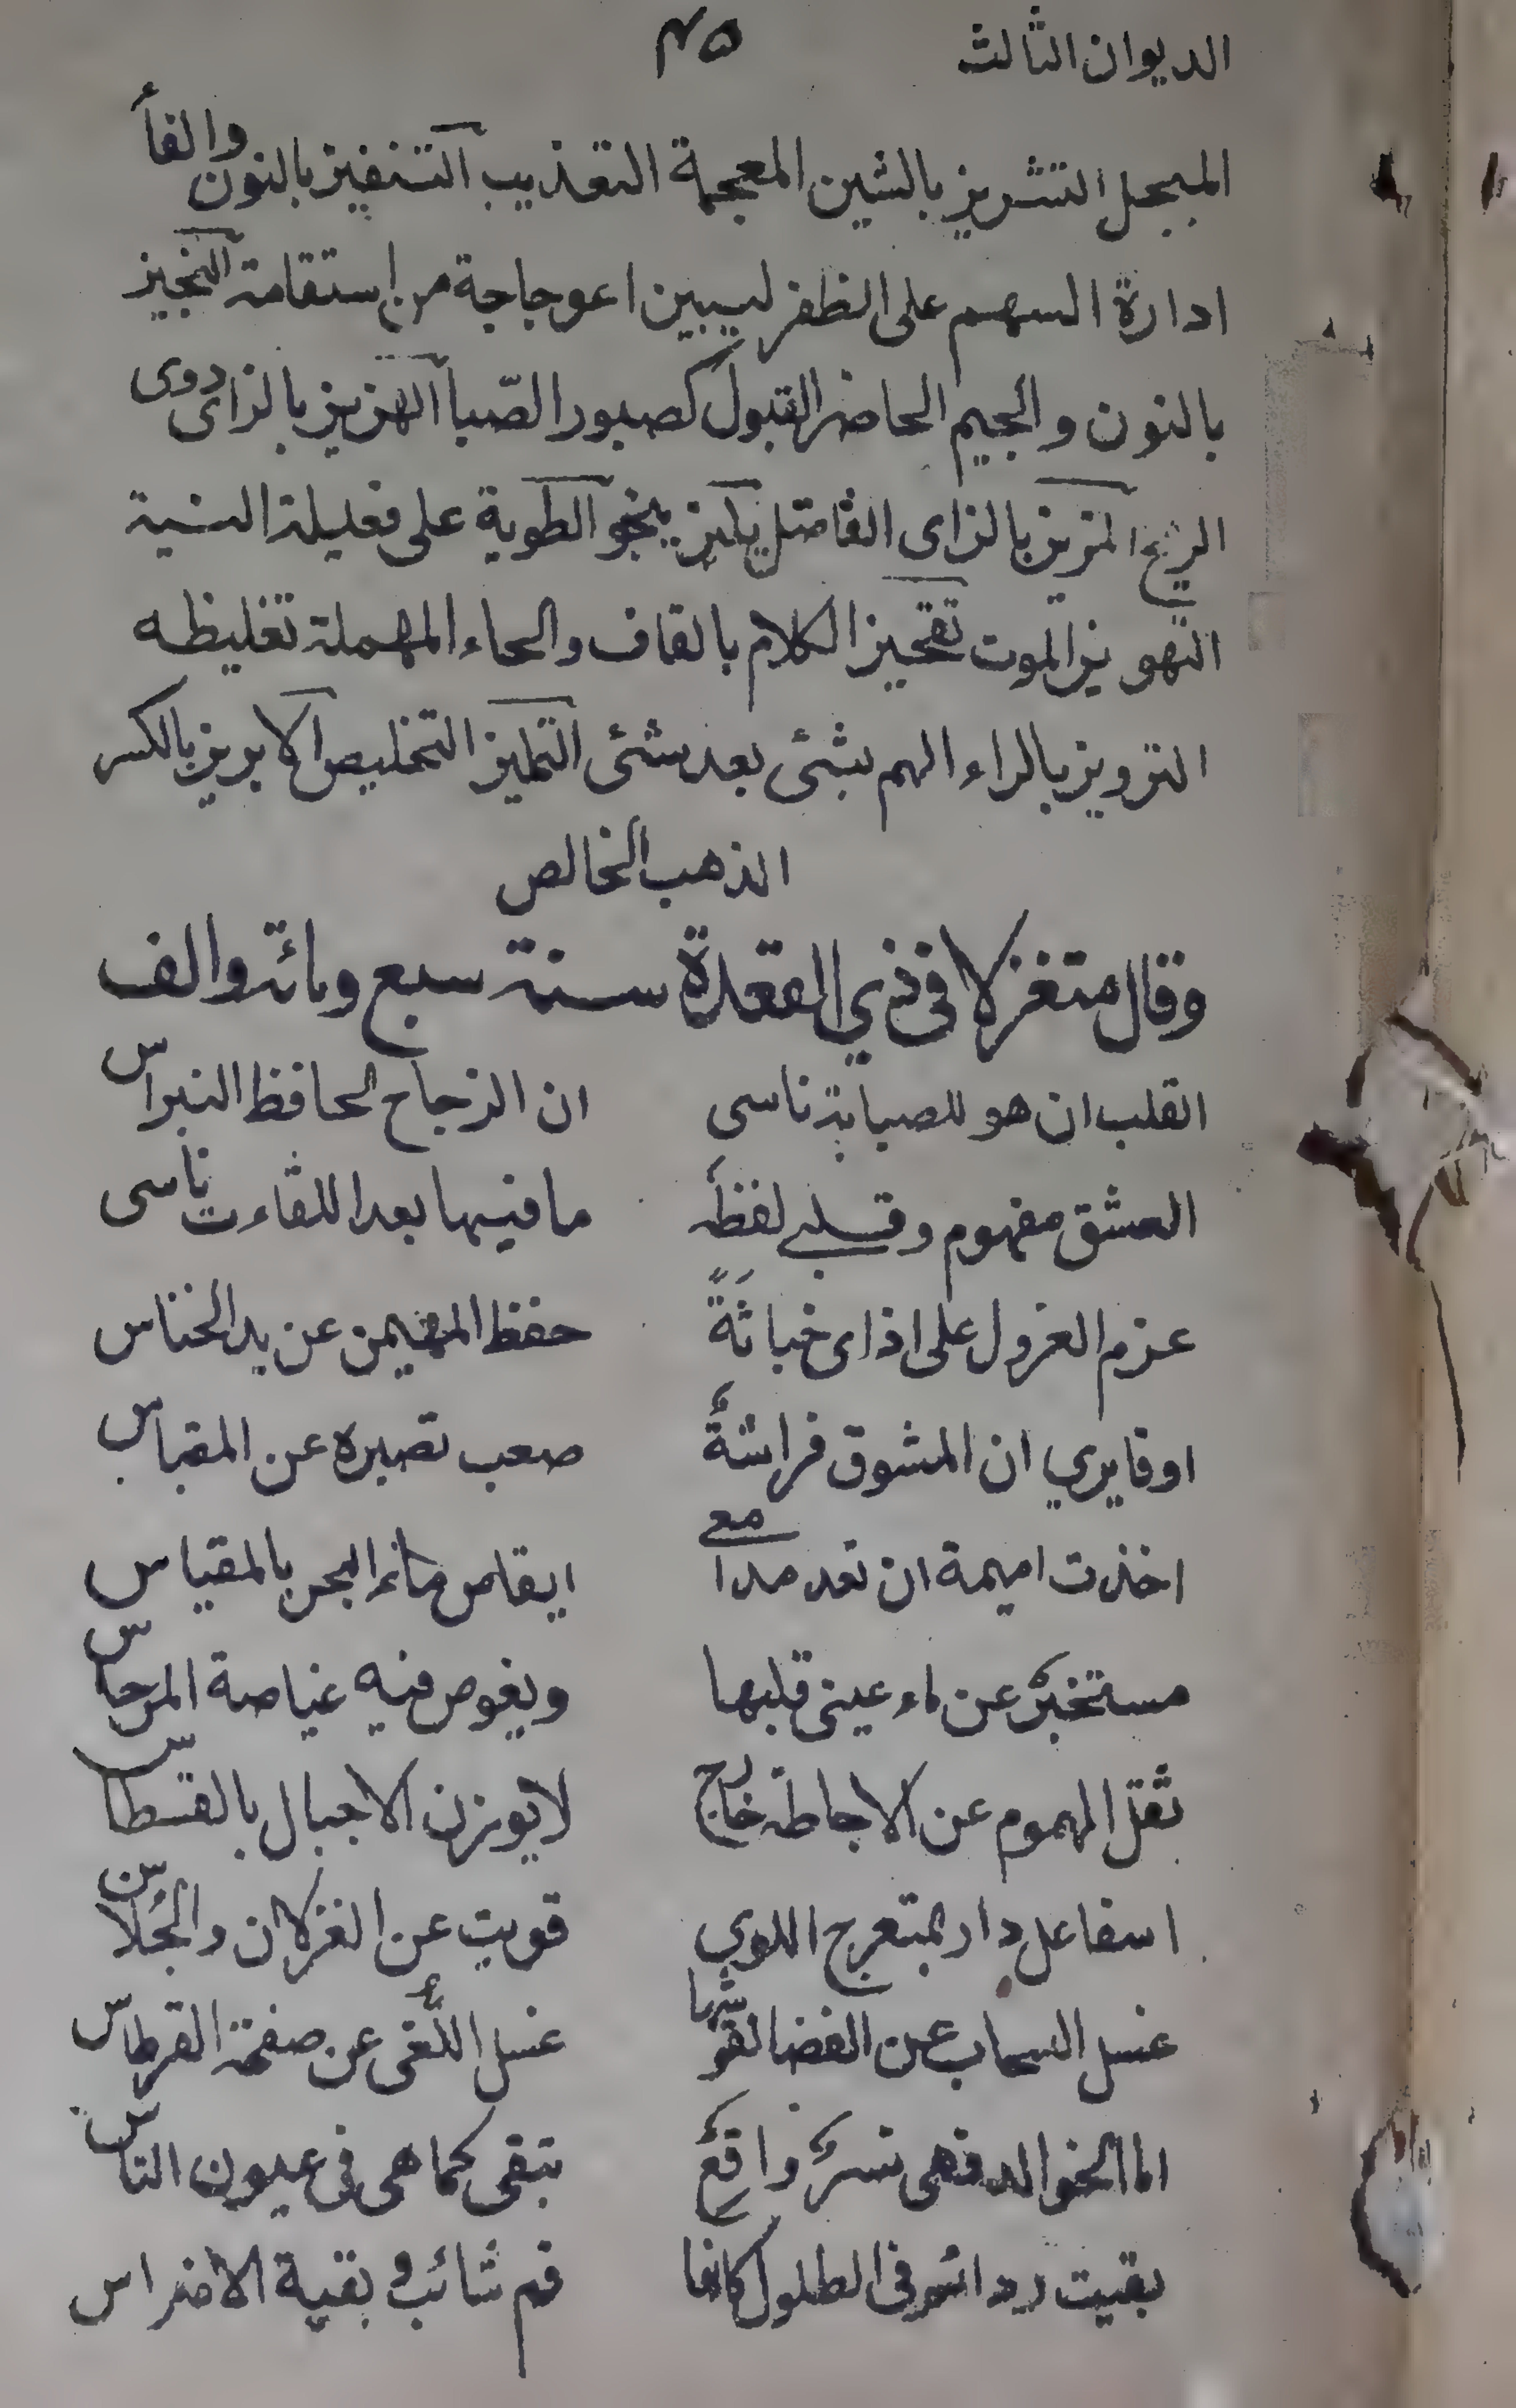 الديوان الثالث ٣٥
المبجل التشريز بالشين المعجمة التعذيب التنفيز بالنون والفأ
ادارة السهم على الظفر ليبين اعوجاجة من استقامته النجيز
بالنون والجيم الحاضر القبول كصبور الصّبا الهزيز بالزاى دوى
الريح المزيز بالزاى الفاضل ينحو الطوية على فعيلة النية
التهويز الموت تقحيز الكلام بالقاف والحاء المهملة تغليظه
الترويز بالراء الهم بشئ بعد شئ التمليز التخليص الابريز بالكسر
الذهب الخالص
وقال متغزلا فى ذي القعدة سنة سبع ومائة والف
القلب ان هو للصبابة ناسى ان الزجاج لحافظ النبراس
العشق مفهوم وقلبي لفظه مافيهما بعد اللقاء تناسى
عزم العزول على اذاى خباثةً حفظ المهيمن عن يد الخناس
اوقايري ان المشوق فراشةٌ صعب تصبره عن المقباس
اخذت اميمة ان تعد مدامعي ايقاس ماء البحر بالمقياس
مستخبرٌ عن ماء عينى قلبها ويغوص فيه غياصة المرجاس
ثقل الهموم عن الاحاطة خارج لايوزن الاجبال بالقسطاس
اسفا على دار بمتعرج اللوي قويت عن الغزلان والجُلاس
غسل السحاب عن الفضا نقوشها غسل اللّغى عن صفحة القرطاس
اما الخوالد فهى نسرٌ واقعٌ تبقى كما هى فى عيون الناس
بقيت رداثر فى الطلول كانها فم شائب وبقية الاضراس